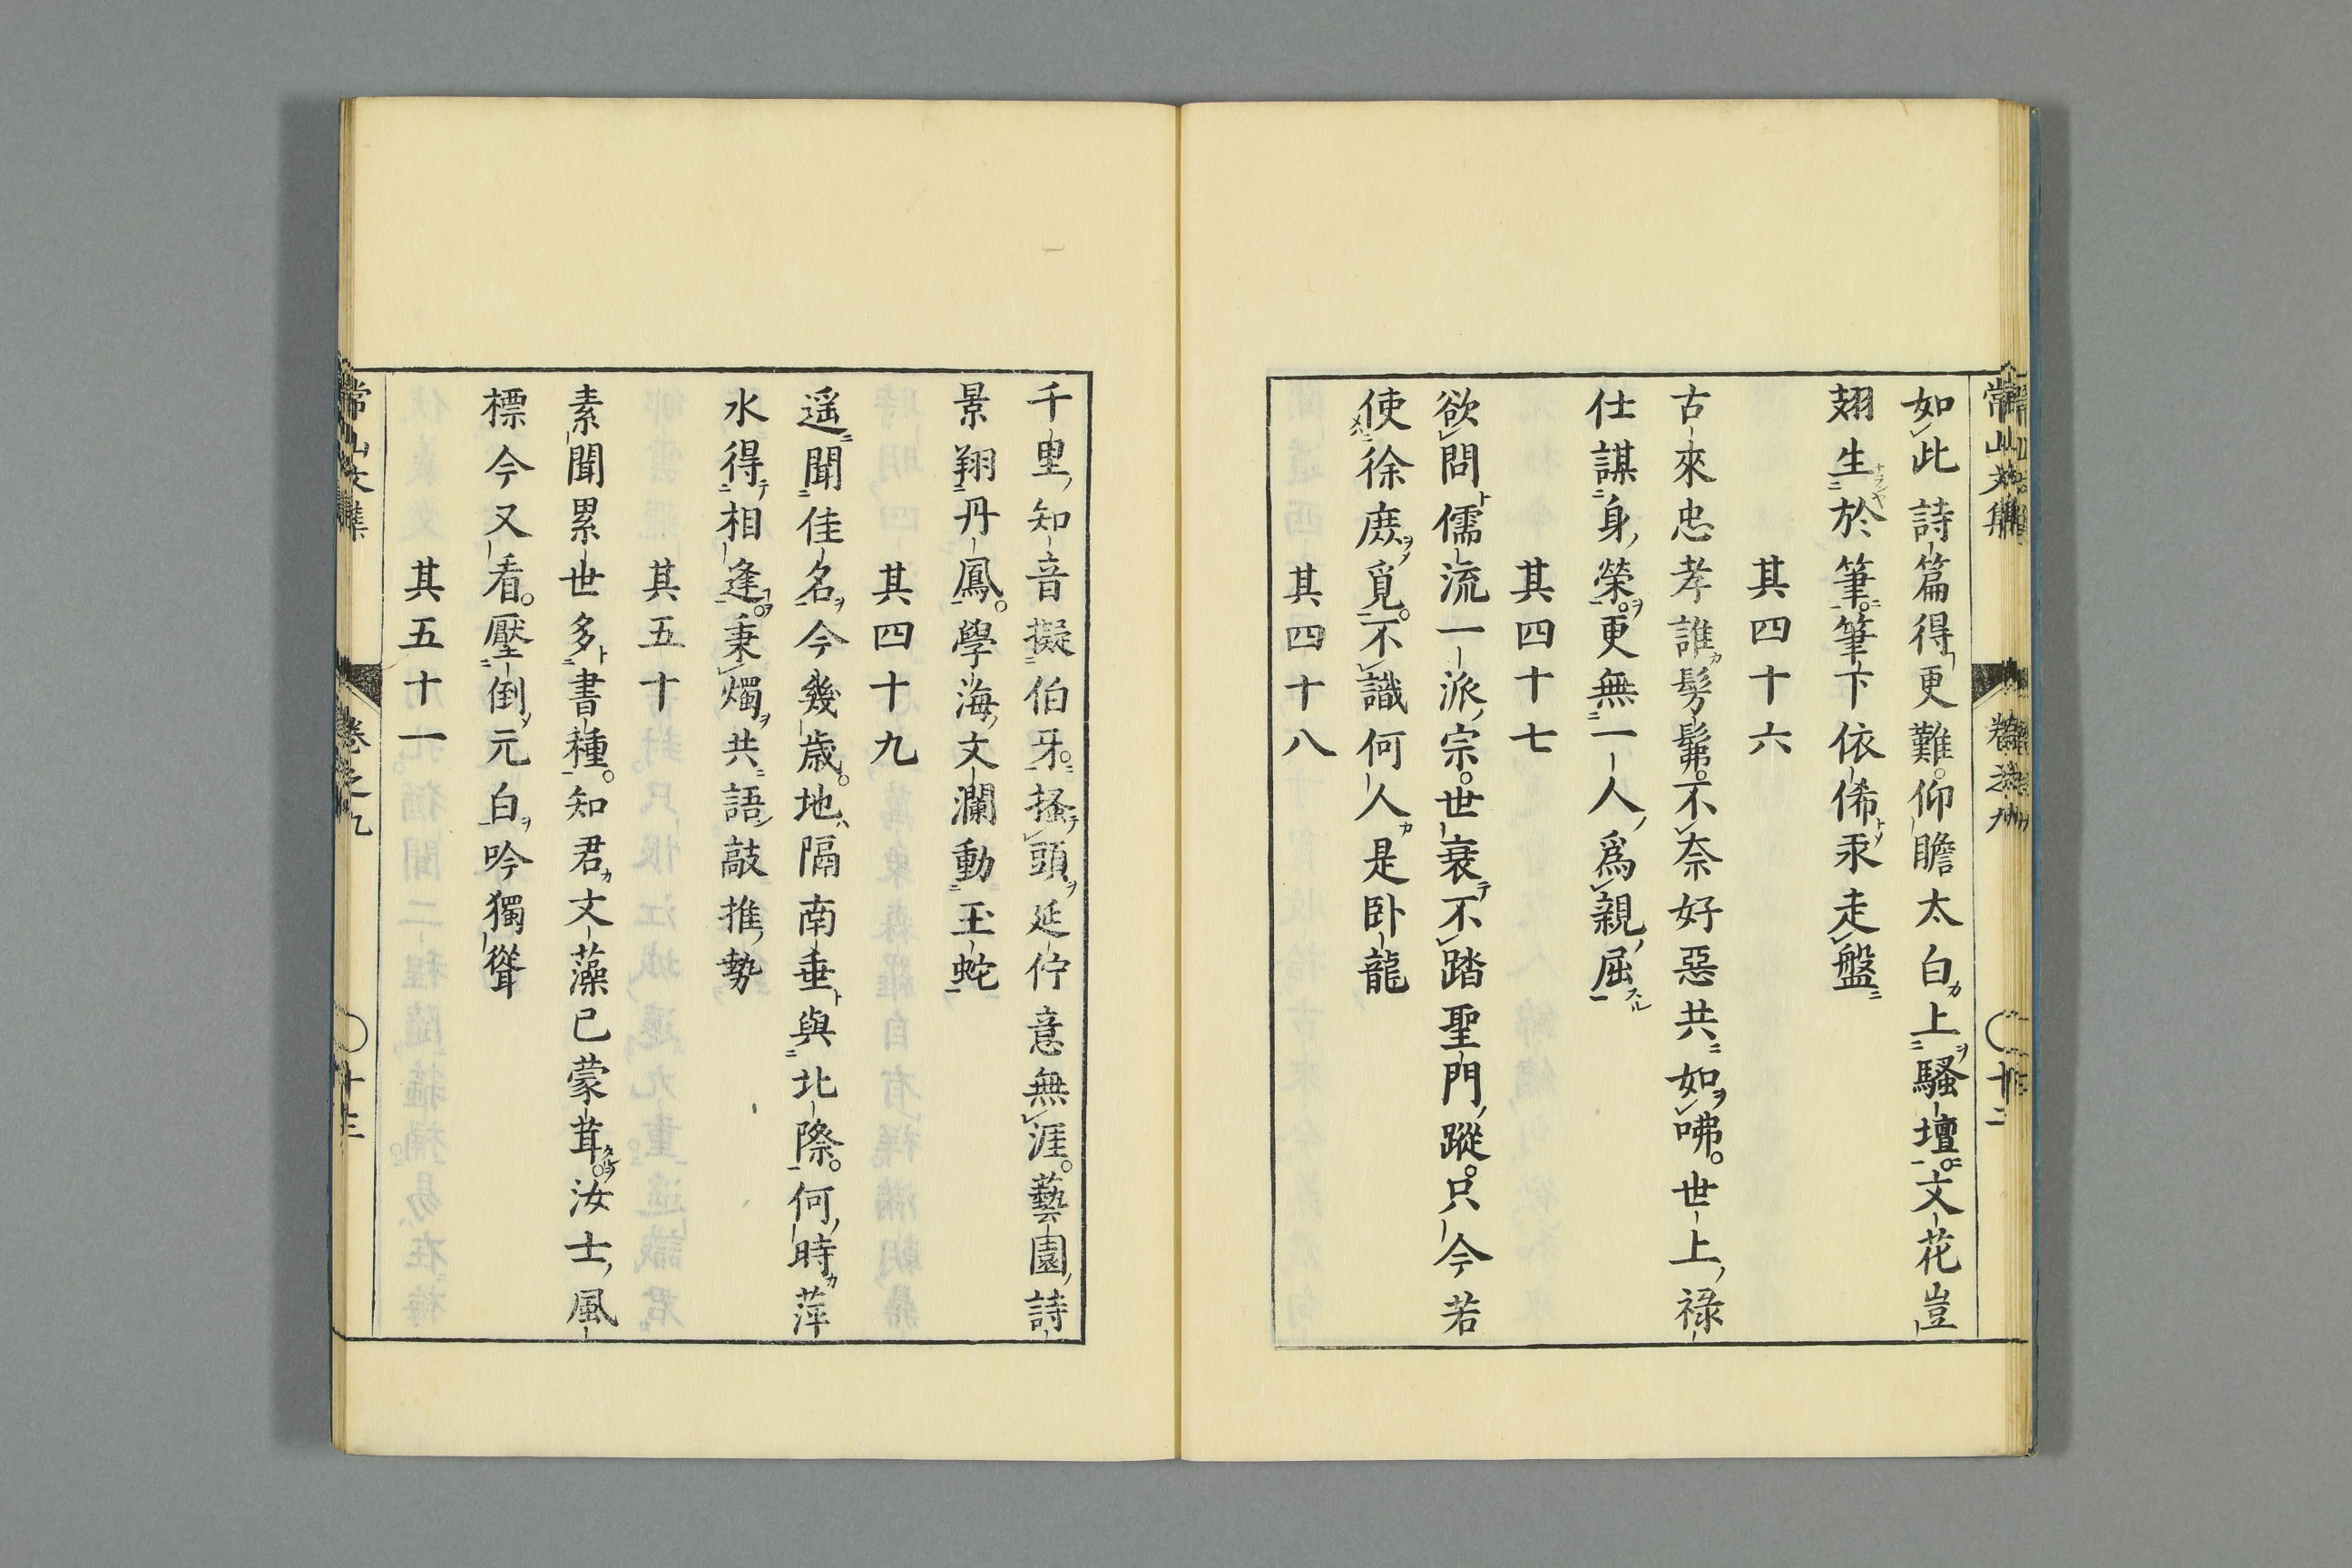 如此詩篇得更難仰瞻太白上騷壇文花豈
翅生於筆筆下依俙汞走盤
其四十六
古來忠孝誰髣髴不奈好惡共如咈世上祿
仕謀身榮更無一人爲親屈
其四十七
欲問儒流一派宗世衰不踏聖門蹤只今若
使徐庶覓不識何人是臥龍
其四十八
千里知音擬伯牙搔頭延佇意無涯藝園詩
景翔丹鳳學海文瀾動玉蛇
其四十九
遥聞佳名今幾歳地隔南垂與北際何時萍
水得相逢秉燭共語敲推勢
其五十
素聞累世多書種知君文藻已蒙茸汝士風
標今又看壓倒元白吟獨聳
其五十一
常山文集
卷之九
十三